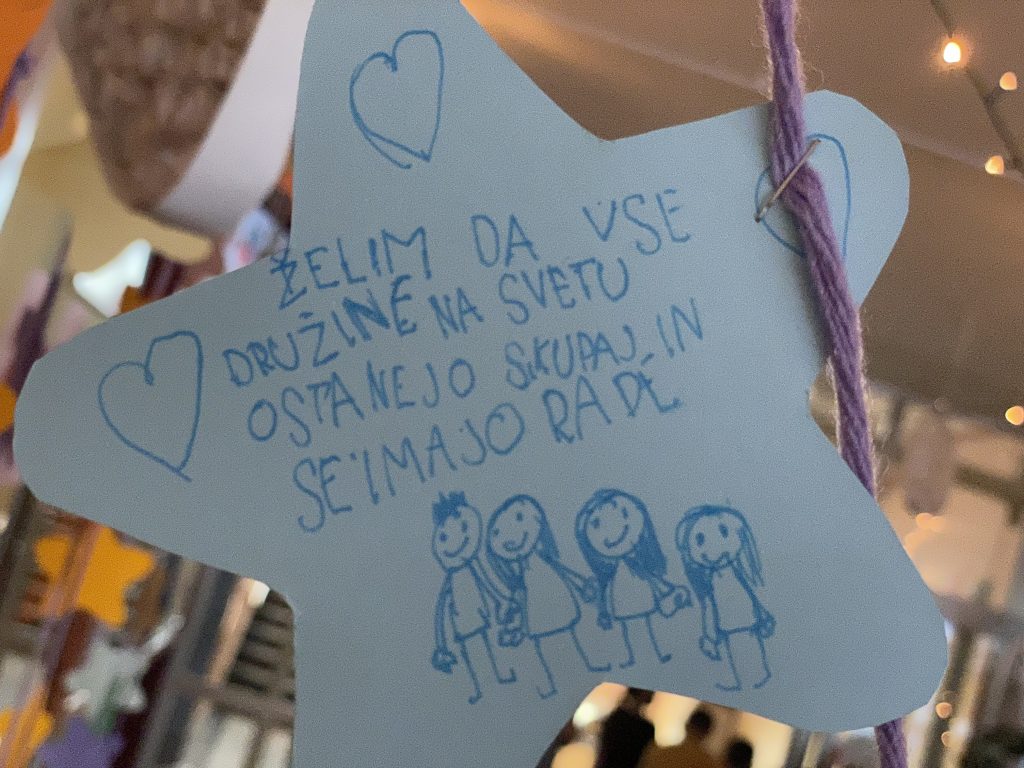 ŽELIM DA VSE
DRUŽINE NA SVETU
OSTANEJO SKUPAJ IN
SE IMAJO RADE